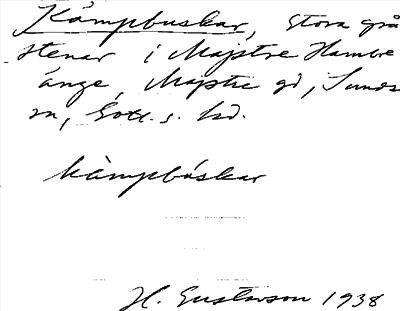 Kämpbuskar, stora grå
stenar i Majstre Hambre
änge, Majstre gd, Sunds
sn, Gotl. s. hd.
kàmpbúskar
H. Gustavson 1938